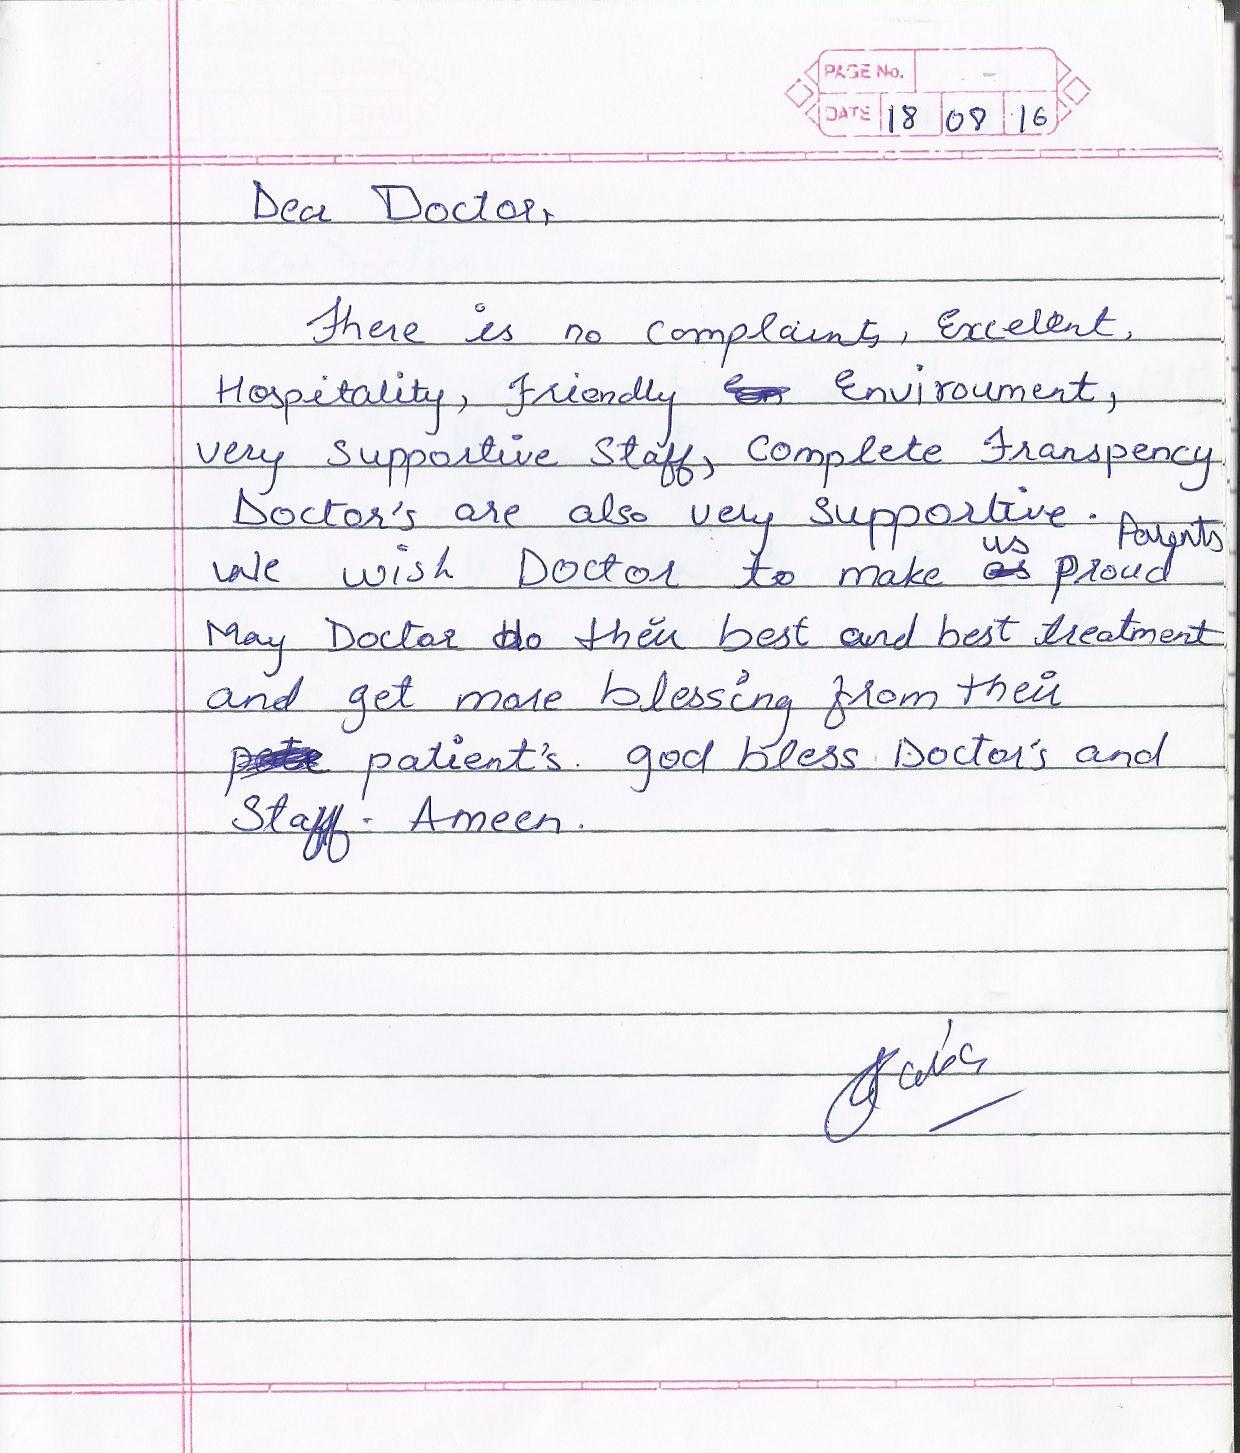 PAGE No. -
DATE 18 08 16
Dear Doctor,
There is no complaints, Excellent,
Hospitality, Friendly Enviroument,
very supportive Staff, Complete Transpency
Doctor's are also very supportive.
We wish Doctor to make us proud Parents
May Doctor do their best and best treatment
and get more blessing from their
patient's. god bless Doctor's and
Staff. Ameen.